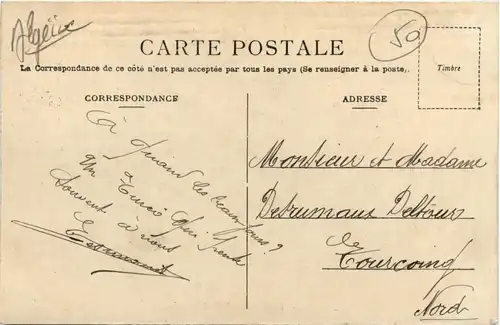 Algérie
50
CARTE POSTALE
La Correspondance de ce côté n'est pas acceptée par tous les pays (Se renseigner à la poste).
Timbre
CORRESPONDANCE
à quand les beaux jours?
un
souvent à vous
ADRESSE
Monsieur et Madame
Destrumaux Deltour
Tourcoing
Nord